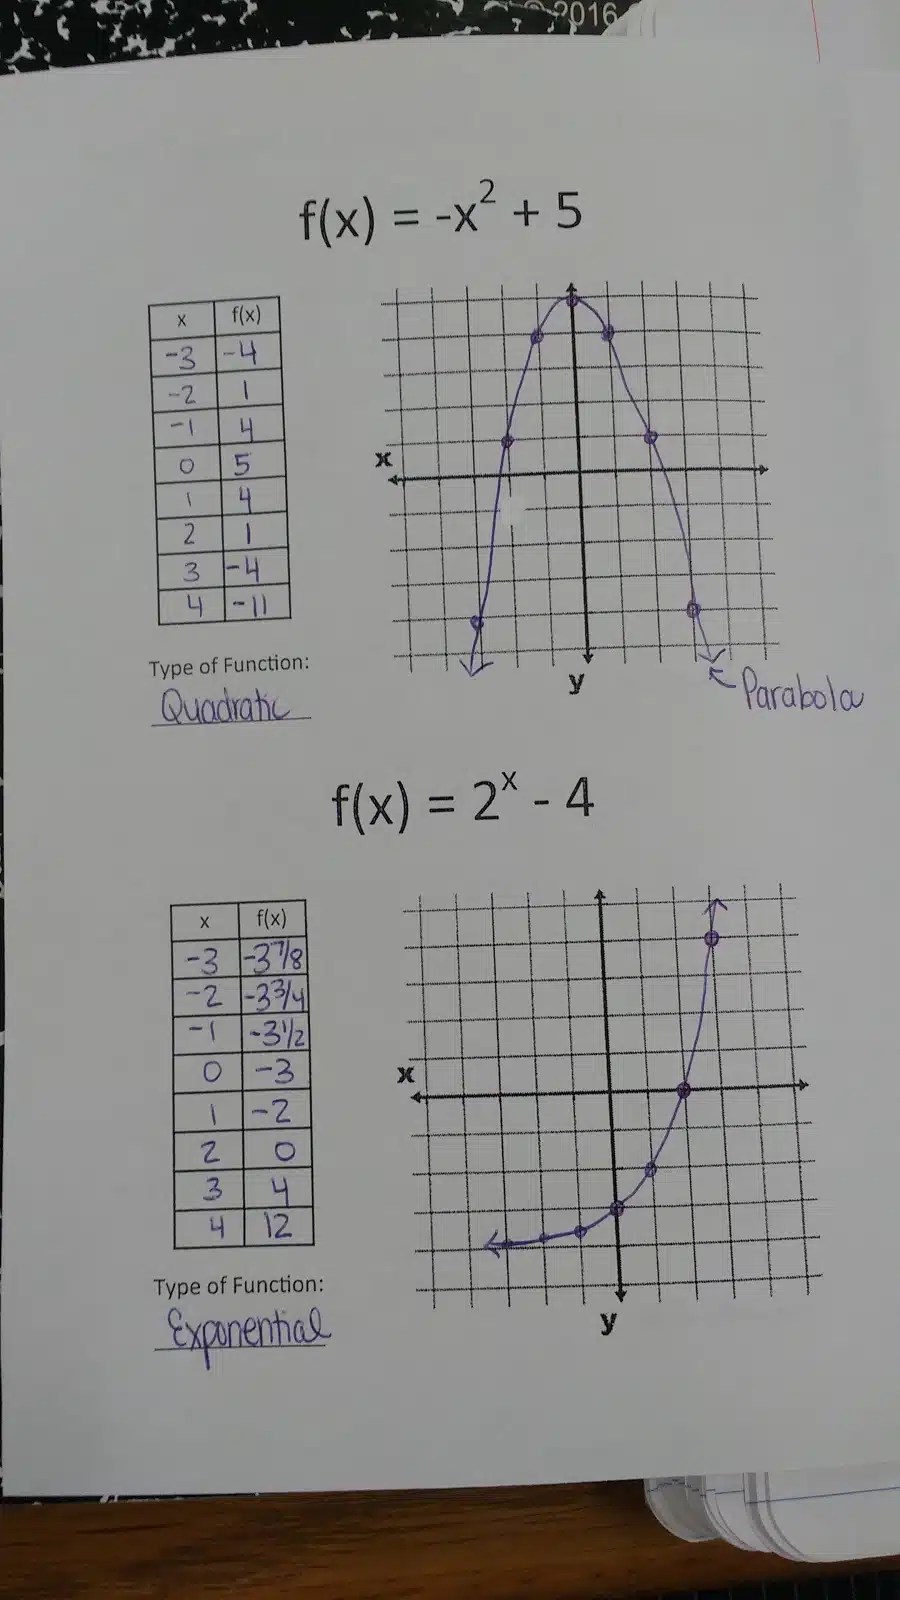 2016
f(x) = -x² + 5
x f(x)
-3 -4
-2 1
-1 4
0 5
1 4
2 1
3 -4
4 -11
x
y
Type of Function:
Quadratic
Parabola
f(x) = 2ˣ - 4
x f(x)
-3 -3 7/8
-2 -3 3/4
-1 -3 1/2
0 -3
1 -2
2 0
3 4
4 12
x
y
Type of Function:
Exponential